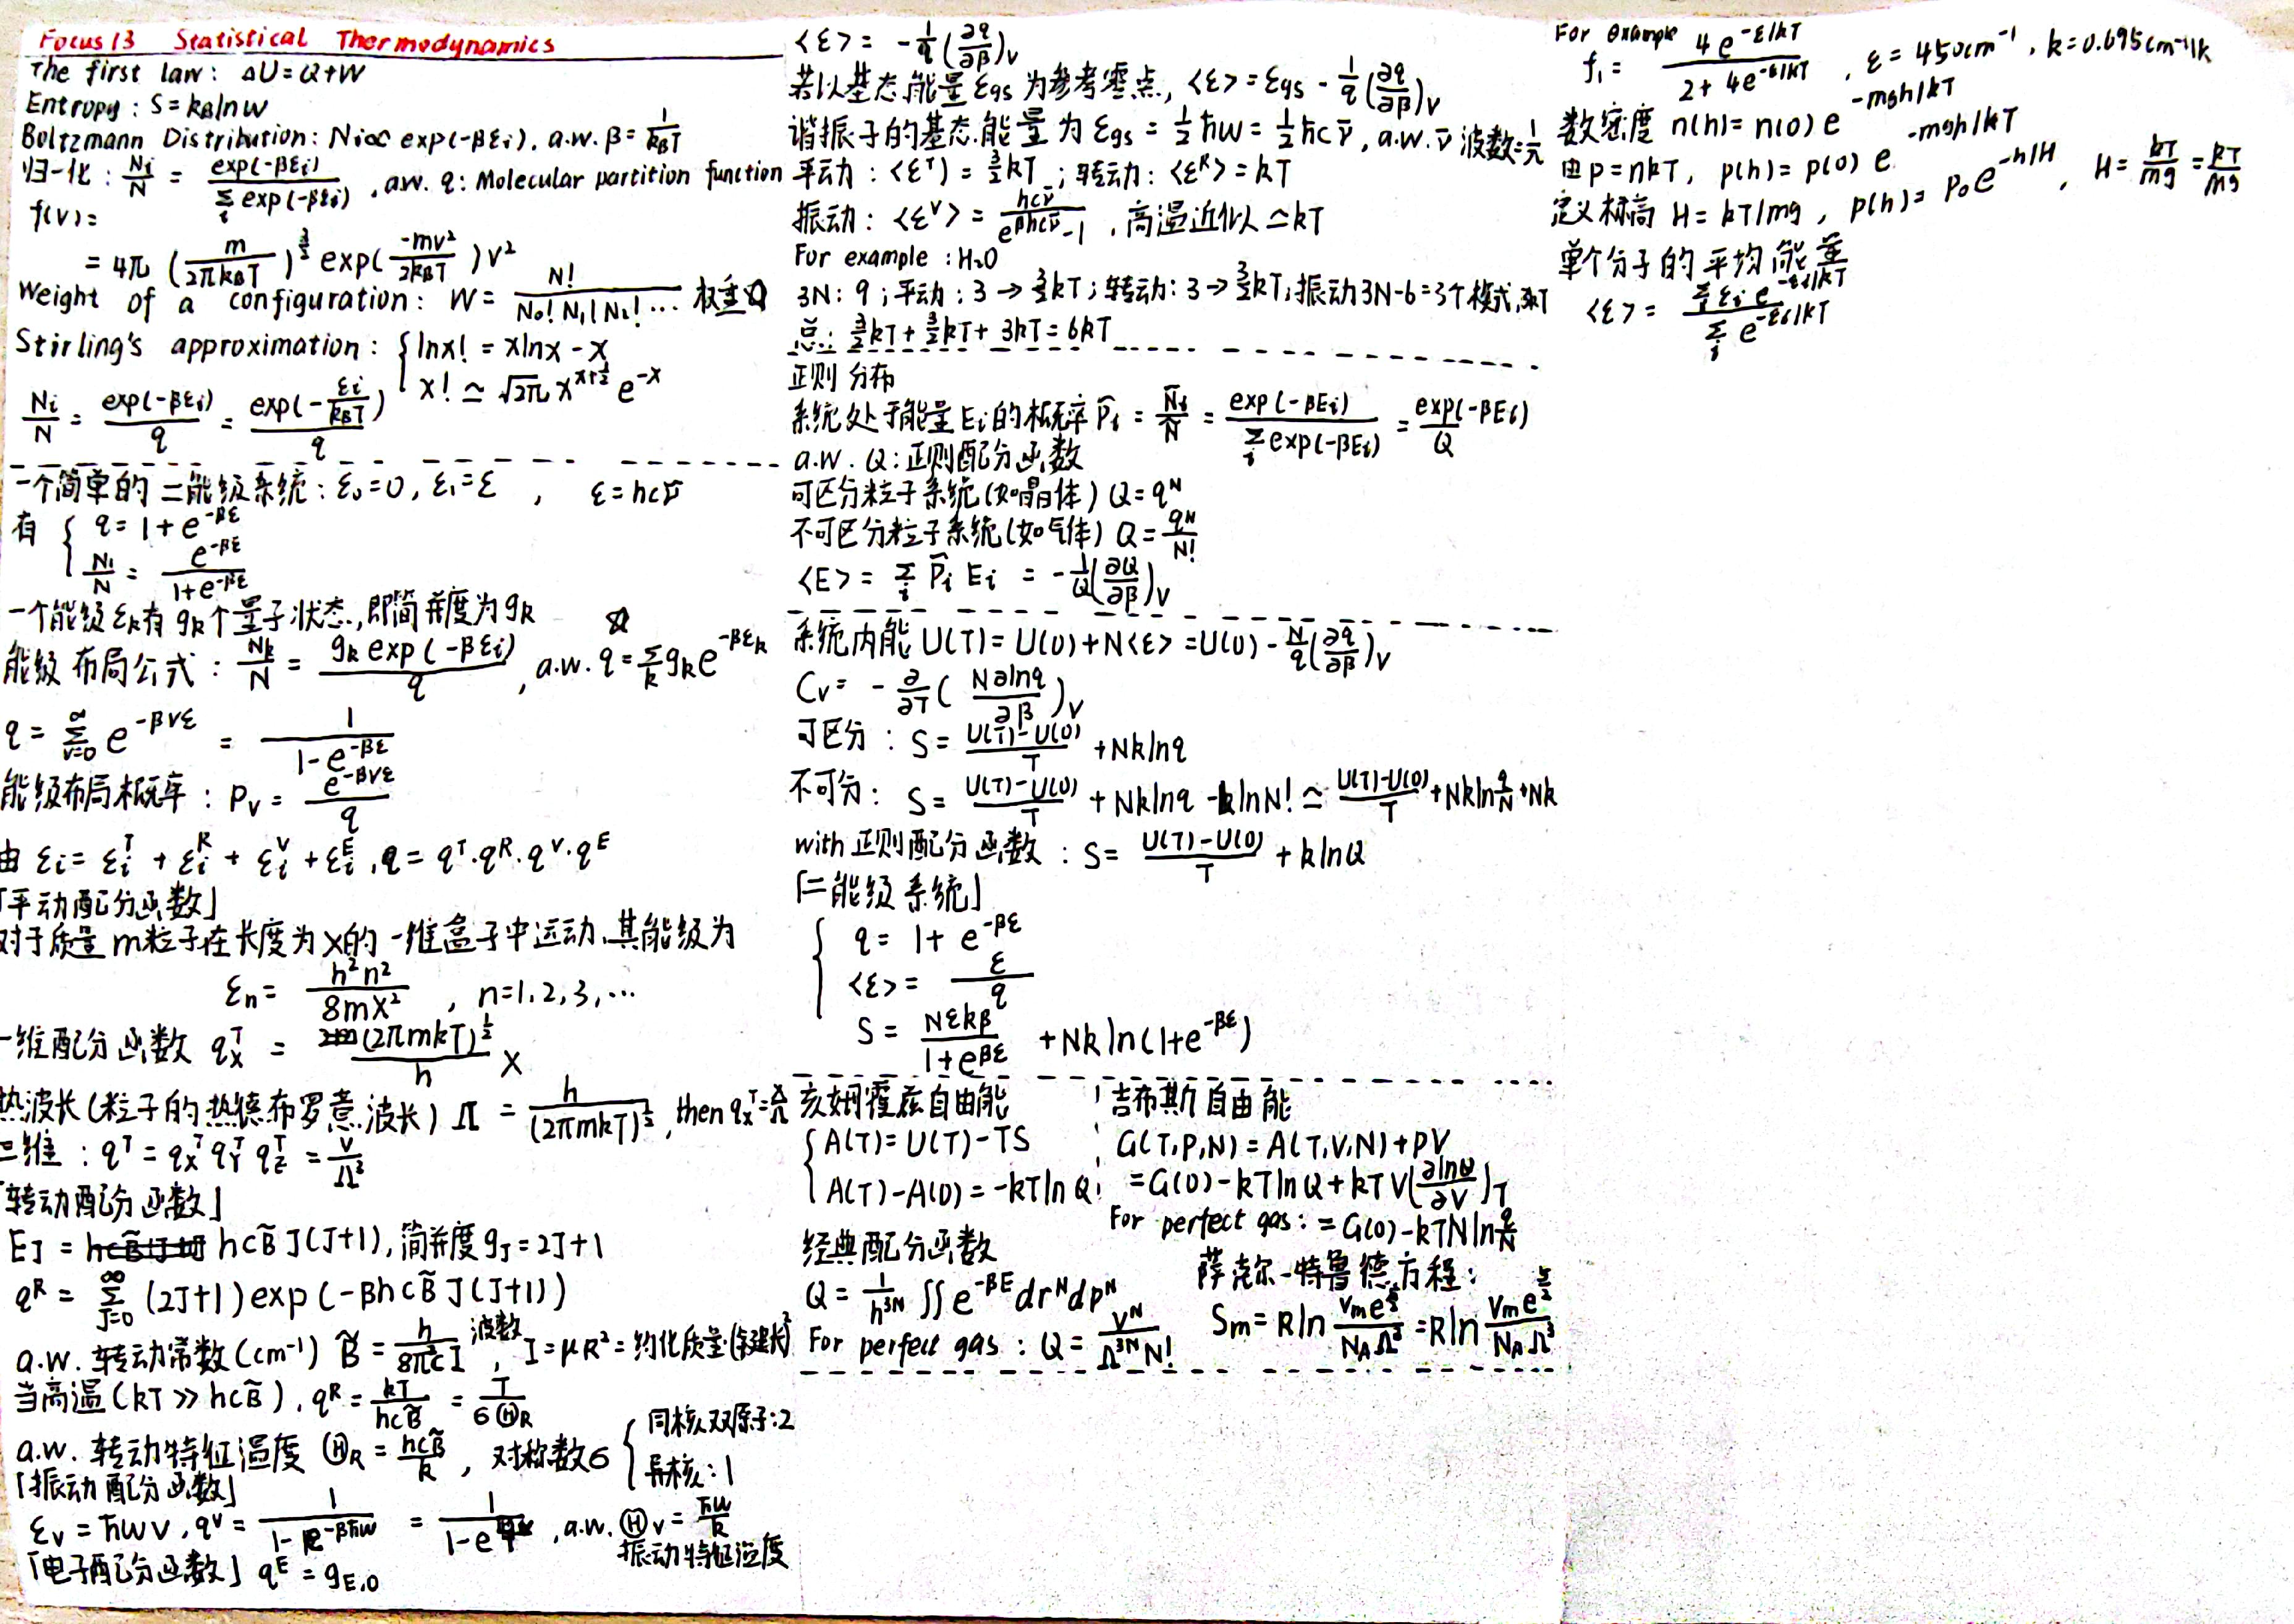 Focus 13 Statistical Thermodynamics
The first law: ΔU=Q+W
Entropy: S=k_B ln W
Boltzmann Distribution: Ni∝ exp(-βεi), a.w. β=1/(k_B T)
归一化: Ni/N = exp(-βεi)/Σ_i exp(-βεi), a.w. q: Molecular partition function
f(v)=
= 4π (m/(2πk_B T))^(3/2) exp(-mv²/(2k_B T)) v²
Weight of a configuration: W= N!/(N₀! N₁! N₂! ...) 权重
Stirling's approximation: { lnx! = xlnx - x
x! ≃ √2π x^(x+1/2) e^-x
Ni/N = exp(-βεi)/q = exp(-εi/(k_B T))/q
一个简单的二能级系统: ε₀=0, ε₁=ε , ε=hcν̃
有 { q= 1+e^-βε
N₁/N = e^-βε/(1+e^-βε)
一个能级εk有gk个量子状态,即简并度为gk
能级布局公式: Nk/N = gk exp(-βεi)/q, a.w. q=Σ_k gk e^-βεk
q= Σ_{v=0}^∞ e^-βvε = 1/(1-e^-βε)
能级布局概率: Pv= e^-βvε/q
由 εi= εi^T + εi^R + εi^V + εi^E, q= q^T·q^R·q^V·q^E
「平动配分函数」
对于质量m粒子在长度为X的一维盒子中运动,其能级为
εn= h²n²/(8mX²) , n=1,2,3,...
一维配分函数 q_X^T = (2πmkT)^(1/2)/h X
热波长(粒子的热德布罗意波长) Λ = h/(2πmkT)^(1/2), then q_X^T=X/Λ
三维: q^T = q_X^T q_Y^T q_Z^T = V/Λ³
「转动配分函数」
EJ = hcB̃J(J+1), 简并度gJ=2J+1
q^R = Σ_{J=0}^∞ (2J+1)exp(-βhcB̃J(J+1))
a.w. 转动常数(cm⁻¹) B̃= h/(8π²cI) 波数, I=μR²=约化质量·(键长)²
当高温(kT≫hcB̃), q^R= kT/(hcB̃) = T/(σΘ_R)
a.w. 转动特征温度 Θ_R= hcB̃/k, 对称数σ { 同核双原子:2
异核:1
「振动配分函数」
εv = ħωv, q^V= 1/(1-e^-βħω) = 1/(1-e , a.w. Θ_V= ħω/k
振动特征温度
「电子配分函数」 q^E = g_E,0
<ε> = -1/q (∂q/∂β)_V
若以基态能量εgs为参考零点, <ε> = εgs - 1/q (∂q/∂β)_V
谐振子的基态能量为εgs = ½ħω = ½hcν̃, a.w. ν̃ 波数=1/λ
平动: <ε^T> = 3/2 kT; 转动: <ε^R> = kT
振动: <ε^V> = hcν̃/(e^βhcν̃ -1), 高温近似≃kT
For example: H₂O
3N: 9; 平动: 3→3/2kT; 转动: 3→3/2kT; 振动3N-6=3个模式,3kT
总: 3/2kT+3/2kT+3kT=6kT
正则分布
系统处于能量Ei的概率 P̃i = Ñi/Ñ = exp(-βEi)/Σ_i exp(-βEi) = exp(-βEi)/Q
a.w. Q: 正则配分函数
可区分粒子系统(如晶体) Q=q^N
不可区分粒子系统(如气体) Q= q^N/N!
<E> = Σ_i P̃i Ei = -1/Q (∂Q/∂β)_V
系统内能 U(T)=U(0)+N<ε>=U(0)-N/q (∂q/∂β)_V
Cv= -∂/∂T (N∂lnq/∂β)_V
可区分: S= (U(T)-U(0))/T +Nklnq
不可分: S= (U(T)-U(0))/T + Nklnq -klnN! ≃ (U(T)-U(0))/T +Nkln q/N +Nk
with 正则配分函数: S= (U(T)-U(0))/T + klnQ
「二能级系统」
{ q= 1+ e^-βε
<ε> = ε/q
S= Nεkβ/(1+e^βε) +Nk ln(1+e^-βε)
亥姆霍兹自由能
{ A(T)=U(T)-TS
A(T)-A(0)=-kTlnQ
吉布斯自由能
G(T,P,N)=A(T,V,N)+PV
=G(0)-kTlnQ+kTV(∂lnQ/∂V)_T
For perfect gas: =G(0)-kTNln q/N
经典配分函数
Q= 1/h^3N ∬e^-βE dr^N dp^N
For perfect gas: Q= V^N/(Λ^3N N!)
萨克尔-特鲁德方程:
Sm=Rln Vme^(5/2)/(N_AΛ³) =Rln Vme^(5/2)/(N_AΛ³)
For example
f₁= 4e^-ε/kT/(2+4e^-ε/kT) , ε=450cm⁻¹, k=0.695cm⁻¹/k
数密度 n(h)=n(0)e^-mgh/kT
由P=nkT, p(h)=p(0)e^-mgh/kT
定义标高 H=kT/mg, p(h)=P₀e^-h/H, H= kT/mg = RT/Mg
单个分子的平均能量
<ε> = Σ_i εi e^-εi/kT / Σ_i e^-εi/kT